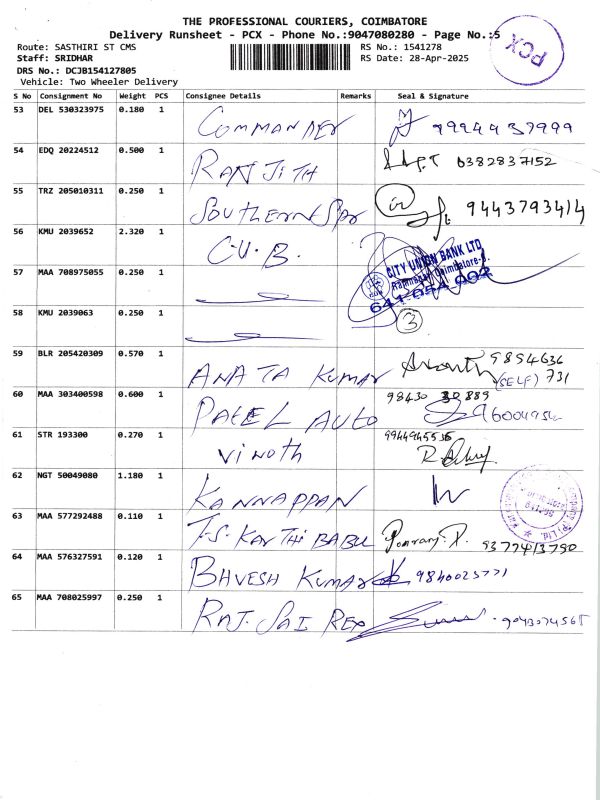 THE PROFESSIONAL COURIERS, COIMBATORE
Delivery Runsheet - PCX - Phone No.:9047080280 - Page No.:5
PCX
Route: SASTHIRI ST CMS
RS No.: 1541278
Staff: SRIDHAR
RS Date: 28-Apr-2025
DRS No.: DCJB154127805
Vehicle: Two Wheeler Delivery
S No Consignment No Weight PCS Consignee Details Remarks Seal & Signature
53 DEL 530323975 0.180 1 COMMANDER 9994937999
54 EDQ 20224512 0.500 1 RANJITH 6382837152
55 TRZ 205010311 0.250 1 SOUTHERN Spr 9443793414
56 KMU 2039652 2.320 1 C.U.B.
CITY UNION BANK LTD
Ramnagar, Coimbatore-9.
641-654-002
57 MAA 708975055 0.250 1
58 KMU 2039063 0.250 1 3
59 BLR 205420309 0.570 1 ANATA KUMAR 9894636
(SELF) 731
60 MAA 303400598 0.600 1 PATEL AUTO 98430 30889
61 STR 193300 0.270 1 Vinoth 9944945536
62 NGT 50049080 1.180 1 KANNAPPAN
63 MAA 577292488 0.110 1 T.S. KANTHI BABU 9377413790
64 MAA 576327591 0.120 1 BHVESH KUMAR 9840025771
65 MAA 708025997 0.250 1 RAJ. SAI REP 9043074565